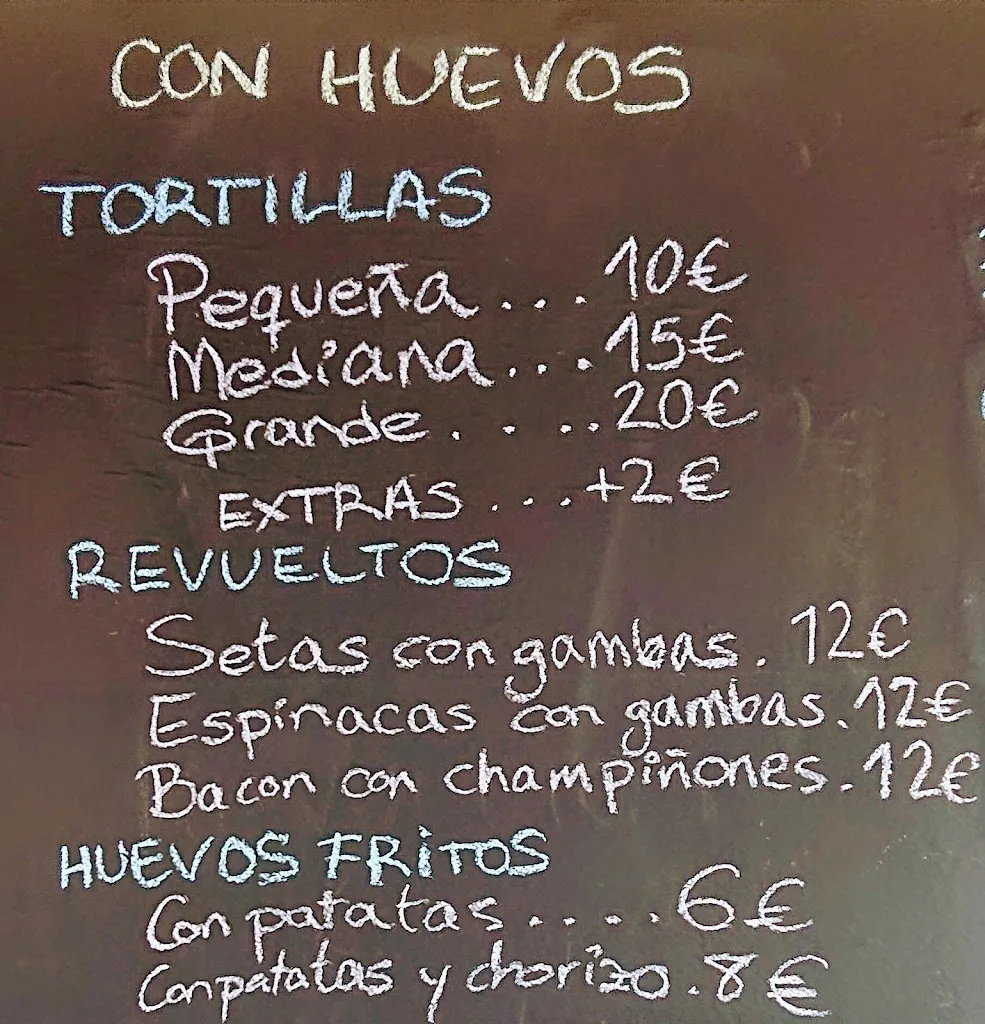 CON HUEVOS
TORTILLAS
Pequeña... 10€
Mediana... 15€
Grande.... 20€
EXTRAS.... +2€
REVUELTOS
Setas con gambas. 12€
Espinacas con gambas. 12€
Bacon con champiñones. 12€
HUEVOS FRITOS
Con patatas.... 6€
Con patatas y chorizo. 8€